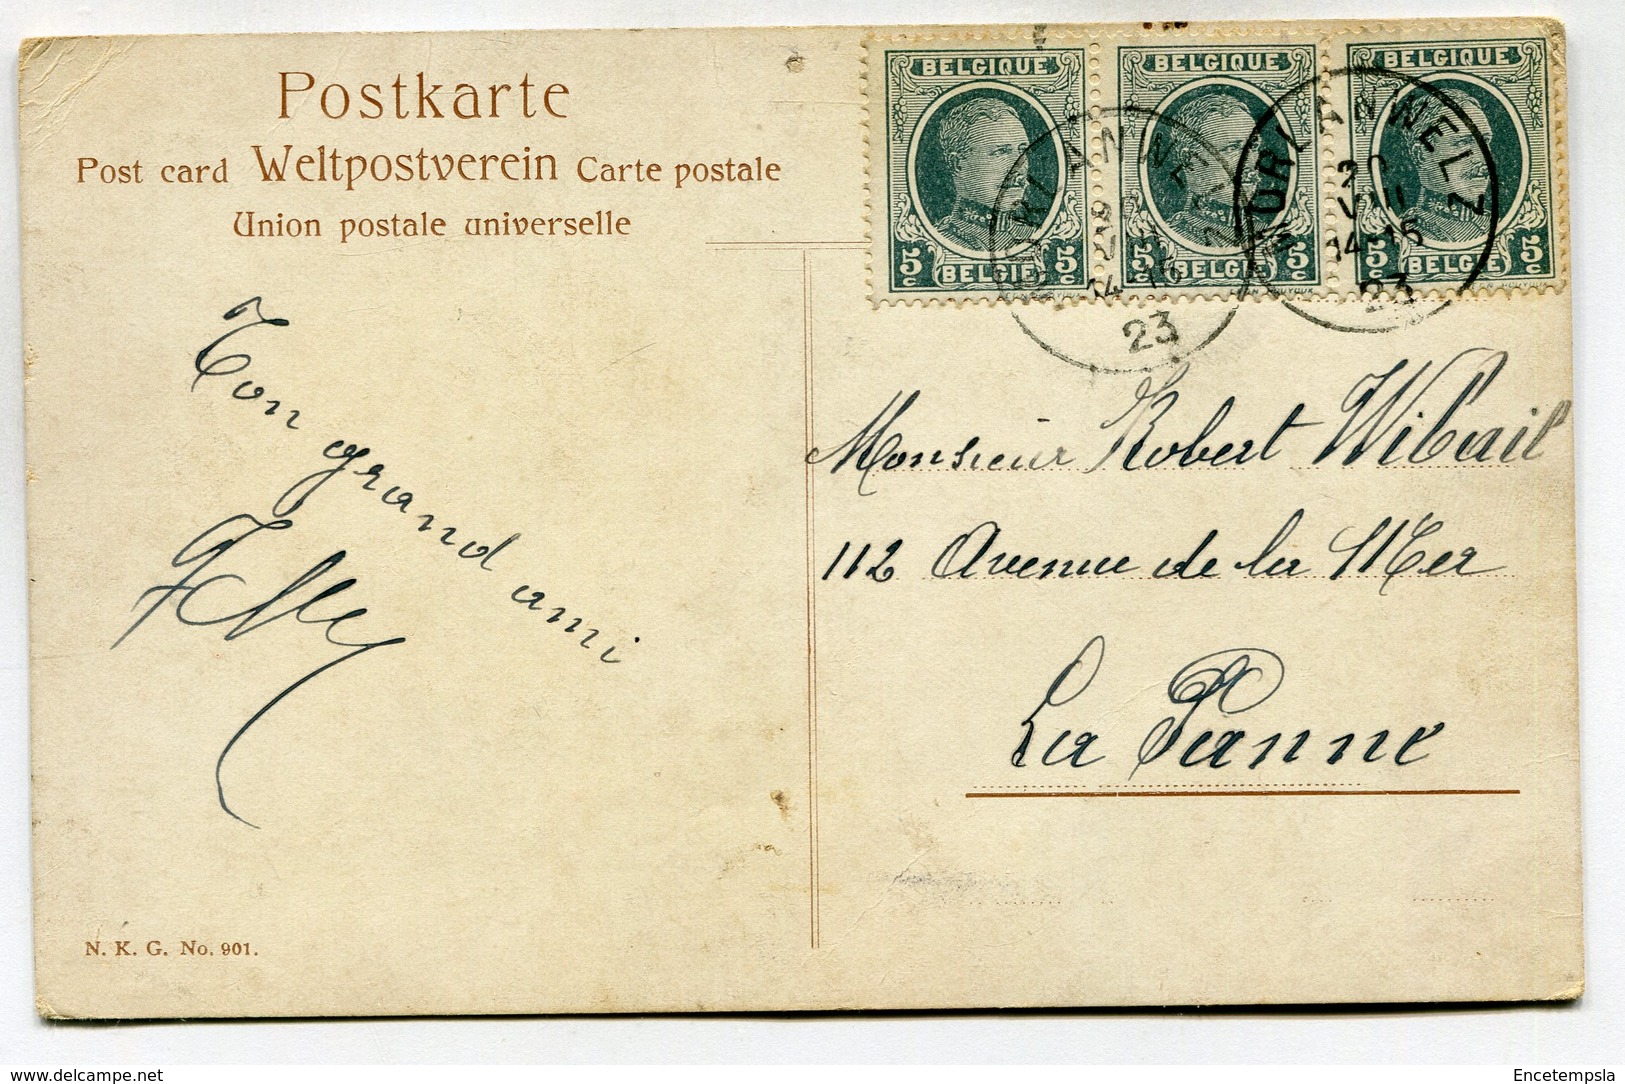 Postkarte
Post card Weltpostverein Carte postale
Union postale universelle
BELGIQUE BELGIQUE BELGIQUE
5c BELGIË 5c 5c BELGIË 5c 5c BELGIË 5c
MORLANWELZ
14-15
23
MORLANWELZ
20
VIII
14-15
23
Ton grand ami
Monsieur Robert Wibail
112 Avenue de la Mer
La Panne
N. K. G. No. 901.
www.delcampe.net
Encetempsla